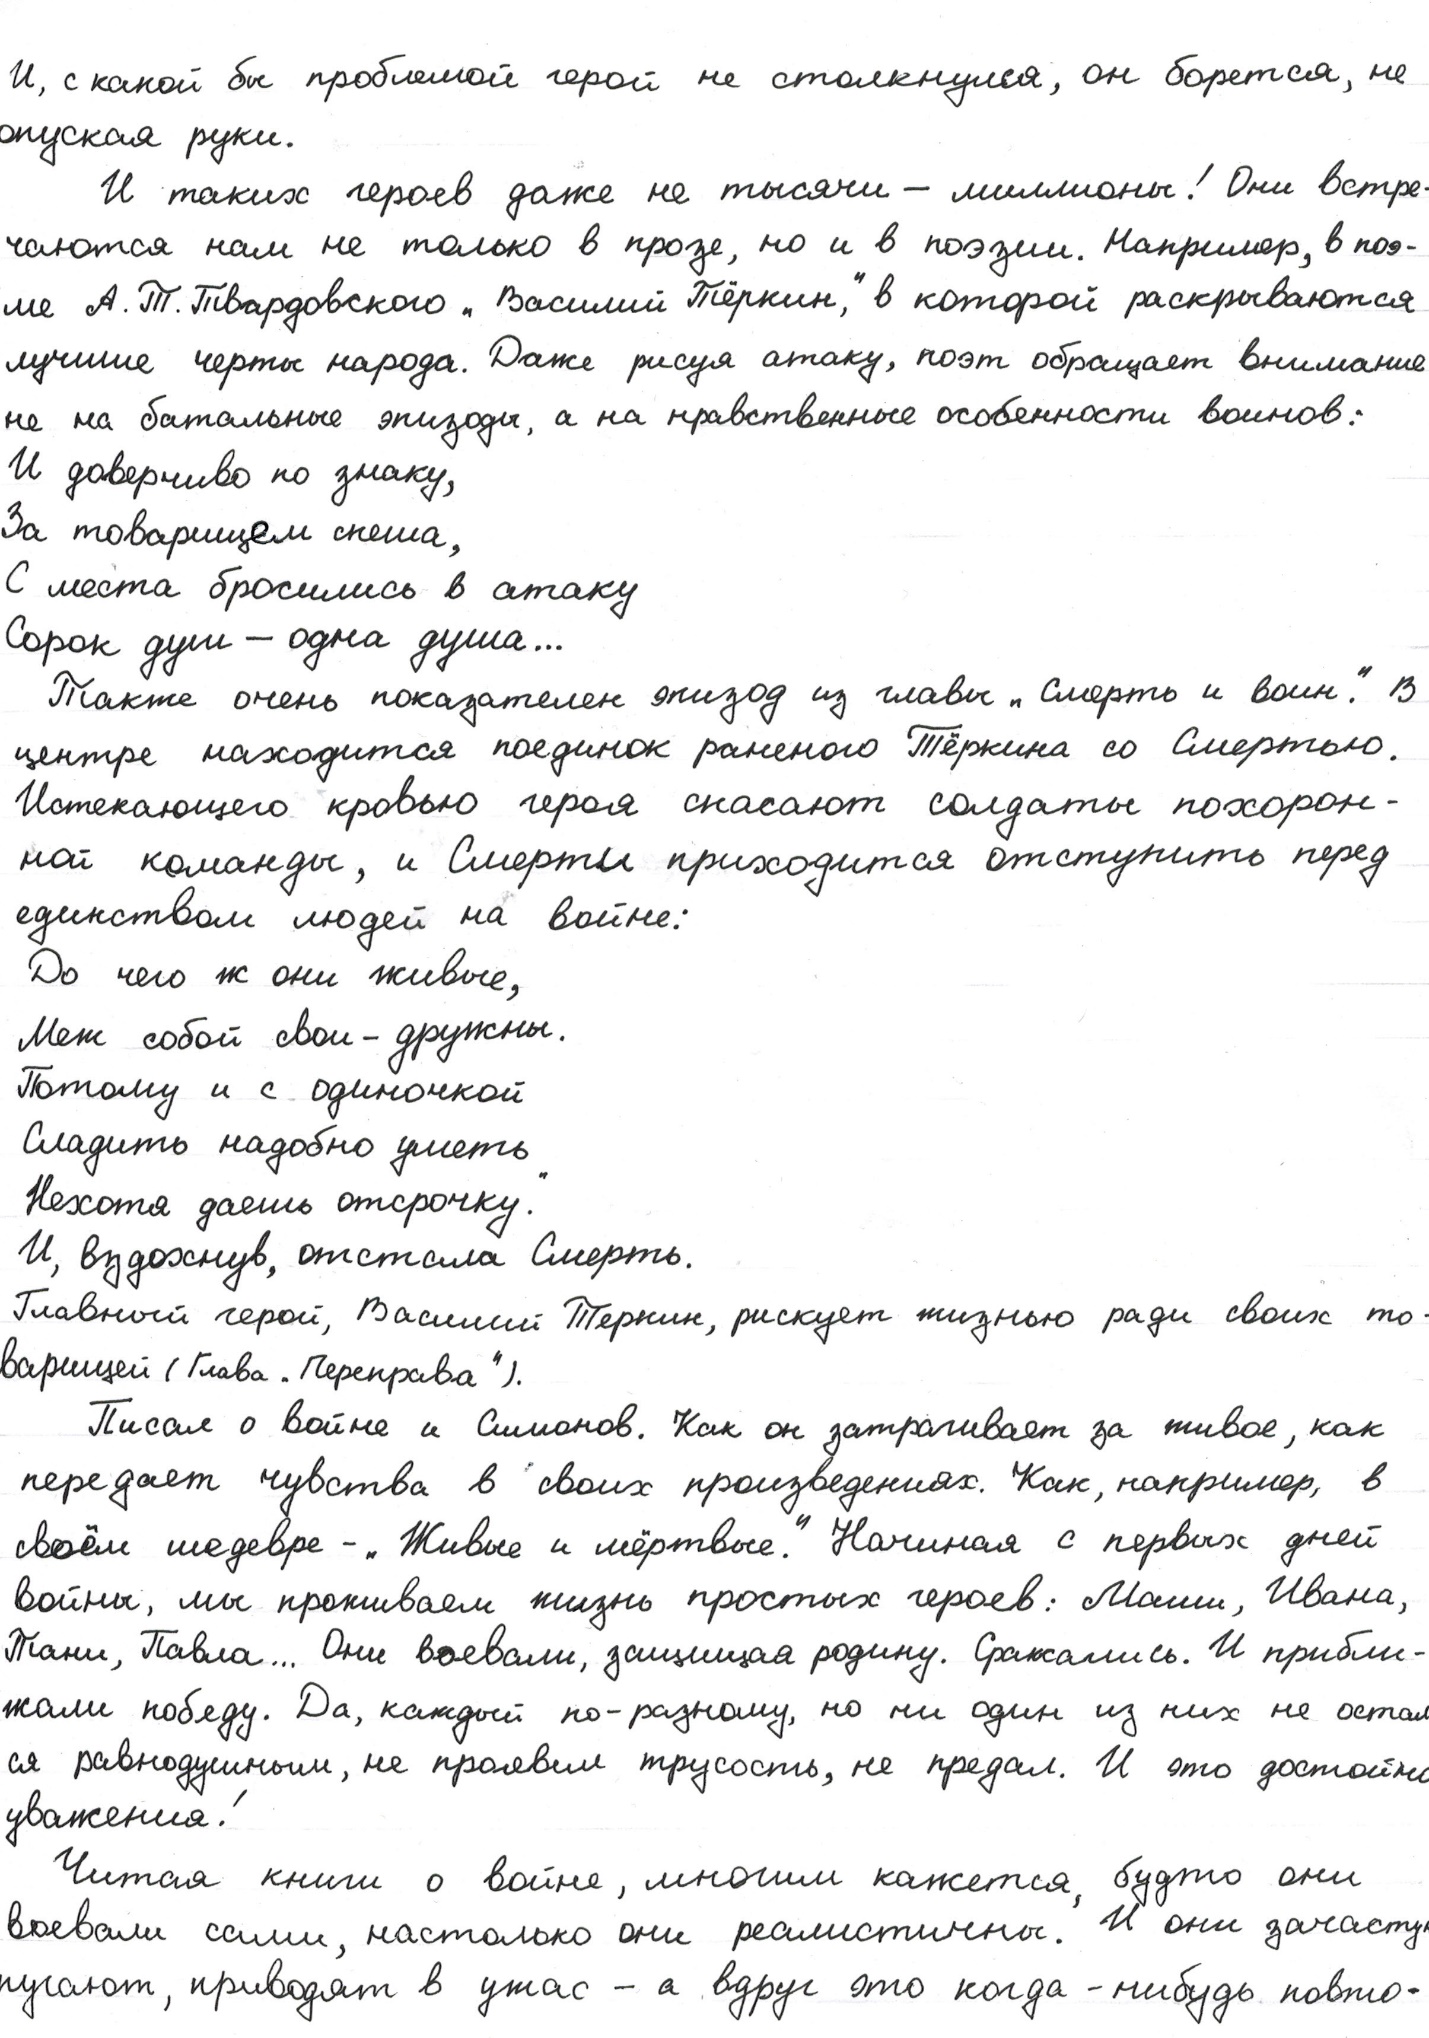 И, с какой бы проблемой герой не столкнулся, он борется, не
опуская руки.
И таких героев даже не тысячи – миллионы! Они встре-
чаются нам не только в прозе, но и в поэзии. Например, в поэ-
ме А.Т.Твардовского „Василий Тёркин," в которой раскрываются
лучшие черты народа. Даже рисуя атаку, поэт обращает внимание
не на батальные эпизоды, а на нравственные особенности воинов:
И доверчиво по знаку,
За товарищем спеша,
С места бросились в атаку
Сорок душ – одна душа...
Также очень показателен эпизод из главы „Смерть и воин". В
центре находится поединок раненого Тёркина со Смертью.
Истекающего кровью героя спасают солдаты похорон-
ной команды, и Смерти приходится отступить перед
единством людей на войне:
До чего ж они живые,
Меж собой свои – дружны.
Потому и с одиночкой
Сладить надобно уметь
Нехотя даешь отсрочку."
И, вздохнув, отстала Смерть.
Главный герой, Василий Теркин, рискует жизнью ради своих то-
варищей (Глава „Переправа").
Писал о войне и Симонов. Как он затрагивает за живое, как
передает чувства в своих произведениях. Как, например, в
своём шедевре – „Живые и мёртвые." Начиная с первых дней
войны, мы проживаем жизнь простых героев: Маши, Ивана,
Тани, Павла... Они воевали, защищая родину. Сражались. И прибли-
жали победу. Да, каждый по-разному, но ни один из них не остал
ся равнодушным, не проявил трусость, не предал. И это достойно
уважения!
Читая книги о войне, многим кажется, будто они
воевали сами, настолько они реалистичны. И они зачастую
пугают, приводят в ужас – а вдруг это когда-нибудь повто-